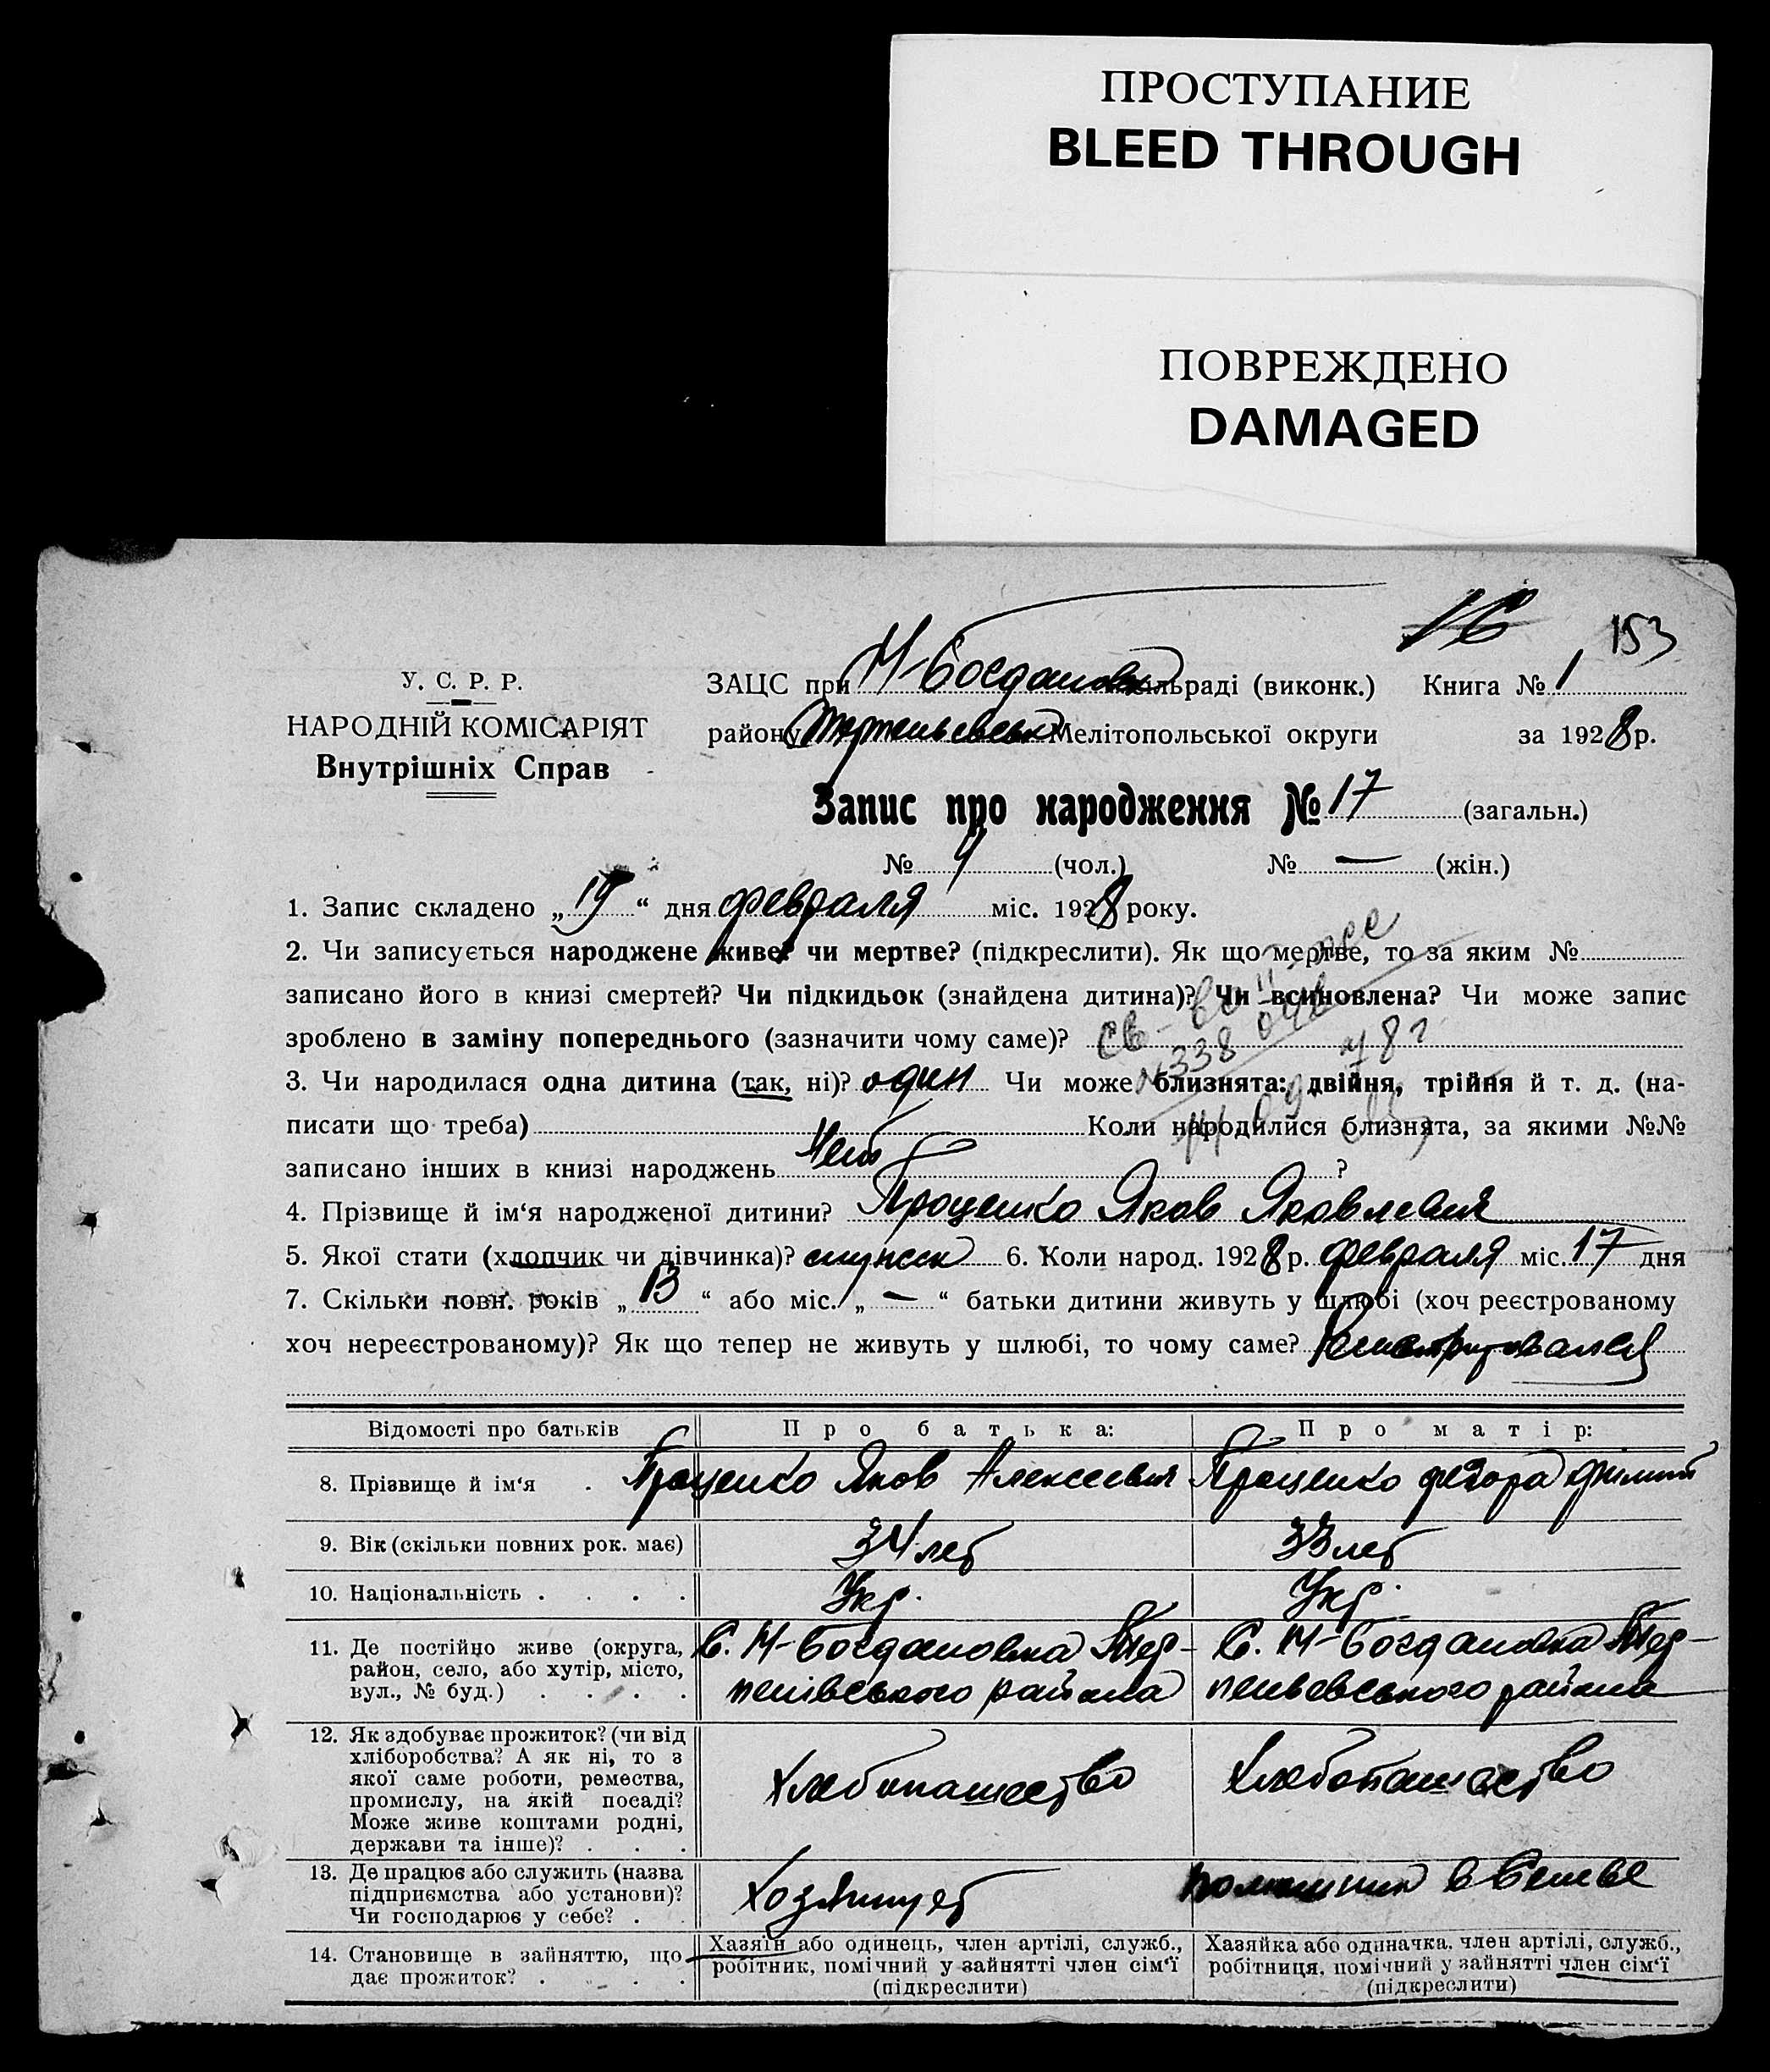 ПРОСТУПАНИЕ
BLEED THROUGH
ПОВРЕЖДЕНО
DAMAGED
16 153
У. С. Р. Р.
НАРОДНІЙ КОМІСАРІЯТ
Внутрішніх Справ
ЗАЦС при М-Богдановськ сільраді (виконк.) Книга № 1
району Мелітопольської округи за 1928 р.
Запис про народження № 17 (загальн.)
№ (чол.) № — (жін.)
1. Запис складено „19“ дня февраля міс. 1928 року.
2. Чи записується народжене живе? чи мертве? (підкреслити). Як що мертве, то за яким №
записано його в книзі смертей? Чи підкидьок (знайдена дитина)? Чи всиновлена? Чи може запис
зроблено в заміну попереднього (зазначити чому саме)?
3. Чи народилася одна дитина (так, ні)? один Чи може близнята: двійня, трійня й т. д. (на-
писати що треба) Коли народилися близнята, за якими №№
записано інших в книзі народжень Нет ?
4. Прізвище й ім‘я народженої дитини? Проценко Яков Яковлевич
5. Якої стати (хлопчик чи дівчинка)? 6. Коли народ. 1928 р. февраля міс. 17 дня
7. Скільки повн. років „13“ або міс. „—“ батьки дитини живуть у шлюбі (хоч реєстрованому
хоч нереєстрованому)? Як що тепер не живуть у шлюбі, то чому саме?
Відомості про батьків Про батька: Про матір:
8. Прізвище й ім‘я . Проценко Яков Алексеевич Проценко
9. Вік (скільки повних рок. має) 34 лет 33 лет
10. Національність . . . . Укр. Укр.
11. Де постійно живе (округа, район, село, або хутір, місто, вул., № буд.) . . . .
С. М-Богдановка Тер-
пенівського района
С. М-Богдановка Тер-
пеньевського района
12. Як здобуває прожиток? (чи від хліборобства? А як ні, то з якої саме роботи, ремества, промислу, на якій посаді? Може живе коштами родні, держави та інше)? . . .
Хлебопашество Хлебопашество
13. Де працює або служить (назва підприємства або установи)? Чи господарює у себе? . .
Хозяинует
14. Становище в зайняттю, що дає прожиток? . . . .
Хазяїн або одинець, член артілі, служб., робітник, помічний у зайнятті член сім‘ї (підкреслити)
Хазяйка або одиначка, член артілі, служб., робітниця, помічний у зайнятті член сім‘ї (підкреслити)